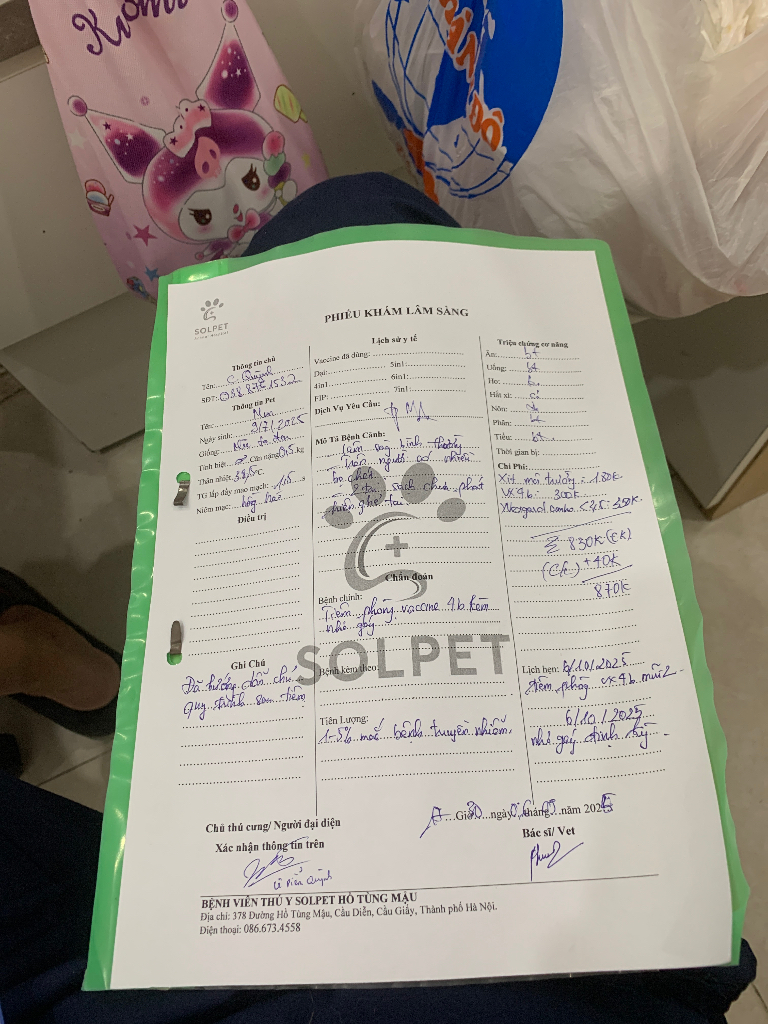 SOLPET
PHIẾU KHÁM LÂM SÀNG
Thông tin chủ
Tên: C. Quỳnh
SĐT:
Thông tin Pet
Tên: Mun
Ngày sinh: 9/7/2025
Giống:
Tính biệt: Cân nặng 0,5 kg
Thân nhiệt: 38,5°C
TG lấp đầy mao mạch: 1,5 s
Niêm mạc: hồng hào
Điều trị
Ghi Chú
Đã hướng dẫn chủ
quy trình sau tiêm
Lịch sử y tế
Vaccine đã dùng:
Dại: 5in1:
4in1 6in1:
FIP: 7in1:
Dịch Vụ Yêu Cầu:
Mô Tả Bệnh Cảnh:
Lâm sàng bình thường
Trên người có nhiều
bọ chét
2 tai sạch chưa phát
hiện ghẻ tai
Chẩn đoán
Bệnh chính:
Tiêm phòng vaccine 4b kèm
nhỏ gáy
SOLPET
Bệnh kèm theo:
Tiên Lượng:
1-5% mắc bệnh truyền nhiễm.
Triệu chứng cơ năng
Ăn: bt
Uống: bt
Ho: k
Hắt xì: có
Nôn:
Phân: bt
Tiểu: bt
Thời gian bị:
Chi Phí:
Xịt môi trường = 180k
VX 4b: 300k
Nexgard combo < 2,5: 350k
Σ 830k (CK)
(CK) + 40k
870k
Lịch hẹn: 6/10/2025
tiêm phòng VX 4b mũi 2
6/10/2025
nhỏ gáy định kỳ
Chủ thú cưng/ Người đại diện
Xác nhận thông tin trên
Giờ 30 ngày 06 tháng 09 năm 2025
Bác sĩ/ Vet
BỆNH VIỆN THÚ Y SOLPET HỒ TÙNG MẬU
Địa chỉ: 378 Đường Hồ Tùng Mậu, Cầu Diễn, Cầu Giấy, Thành phố Hà Nội.
Điện thoại: 086.673.4558